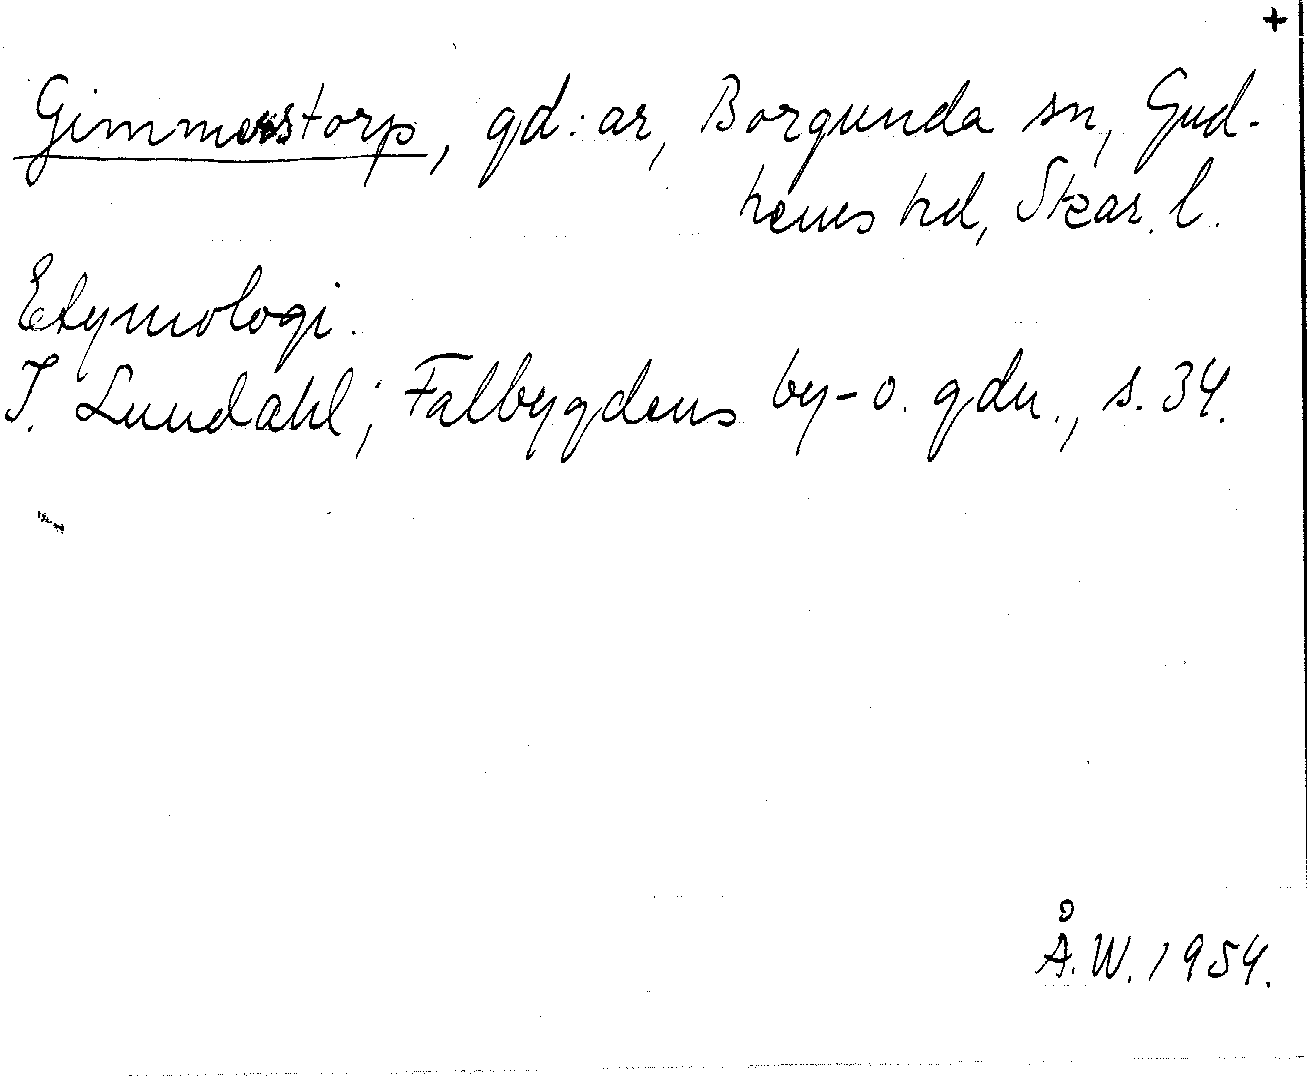 +
Gimmerstorp, gd:ar, Borgunda sn, Gud-
hems hd, Skar. l.
Etymologi.
I. Lundahl; Falbygdens by- o. gdn., s. 34.
Å.W. 1954.